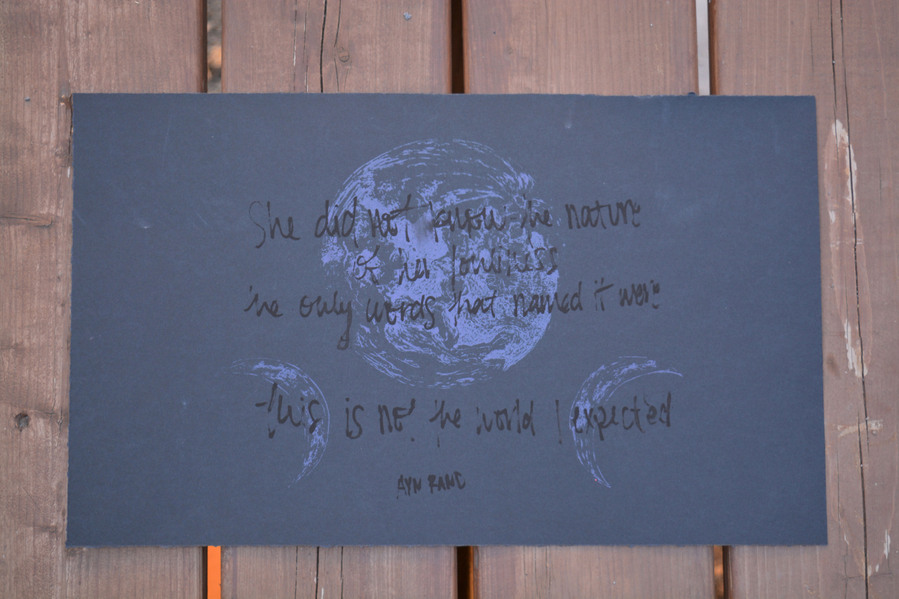 She did not know the nature
of her lonliness
the only words that named it were
this is not the world I expected
AYN RAND